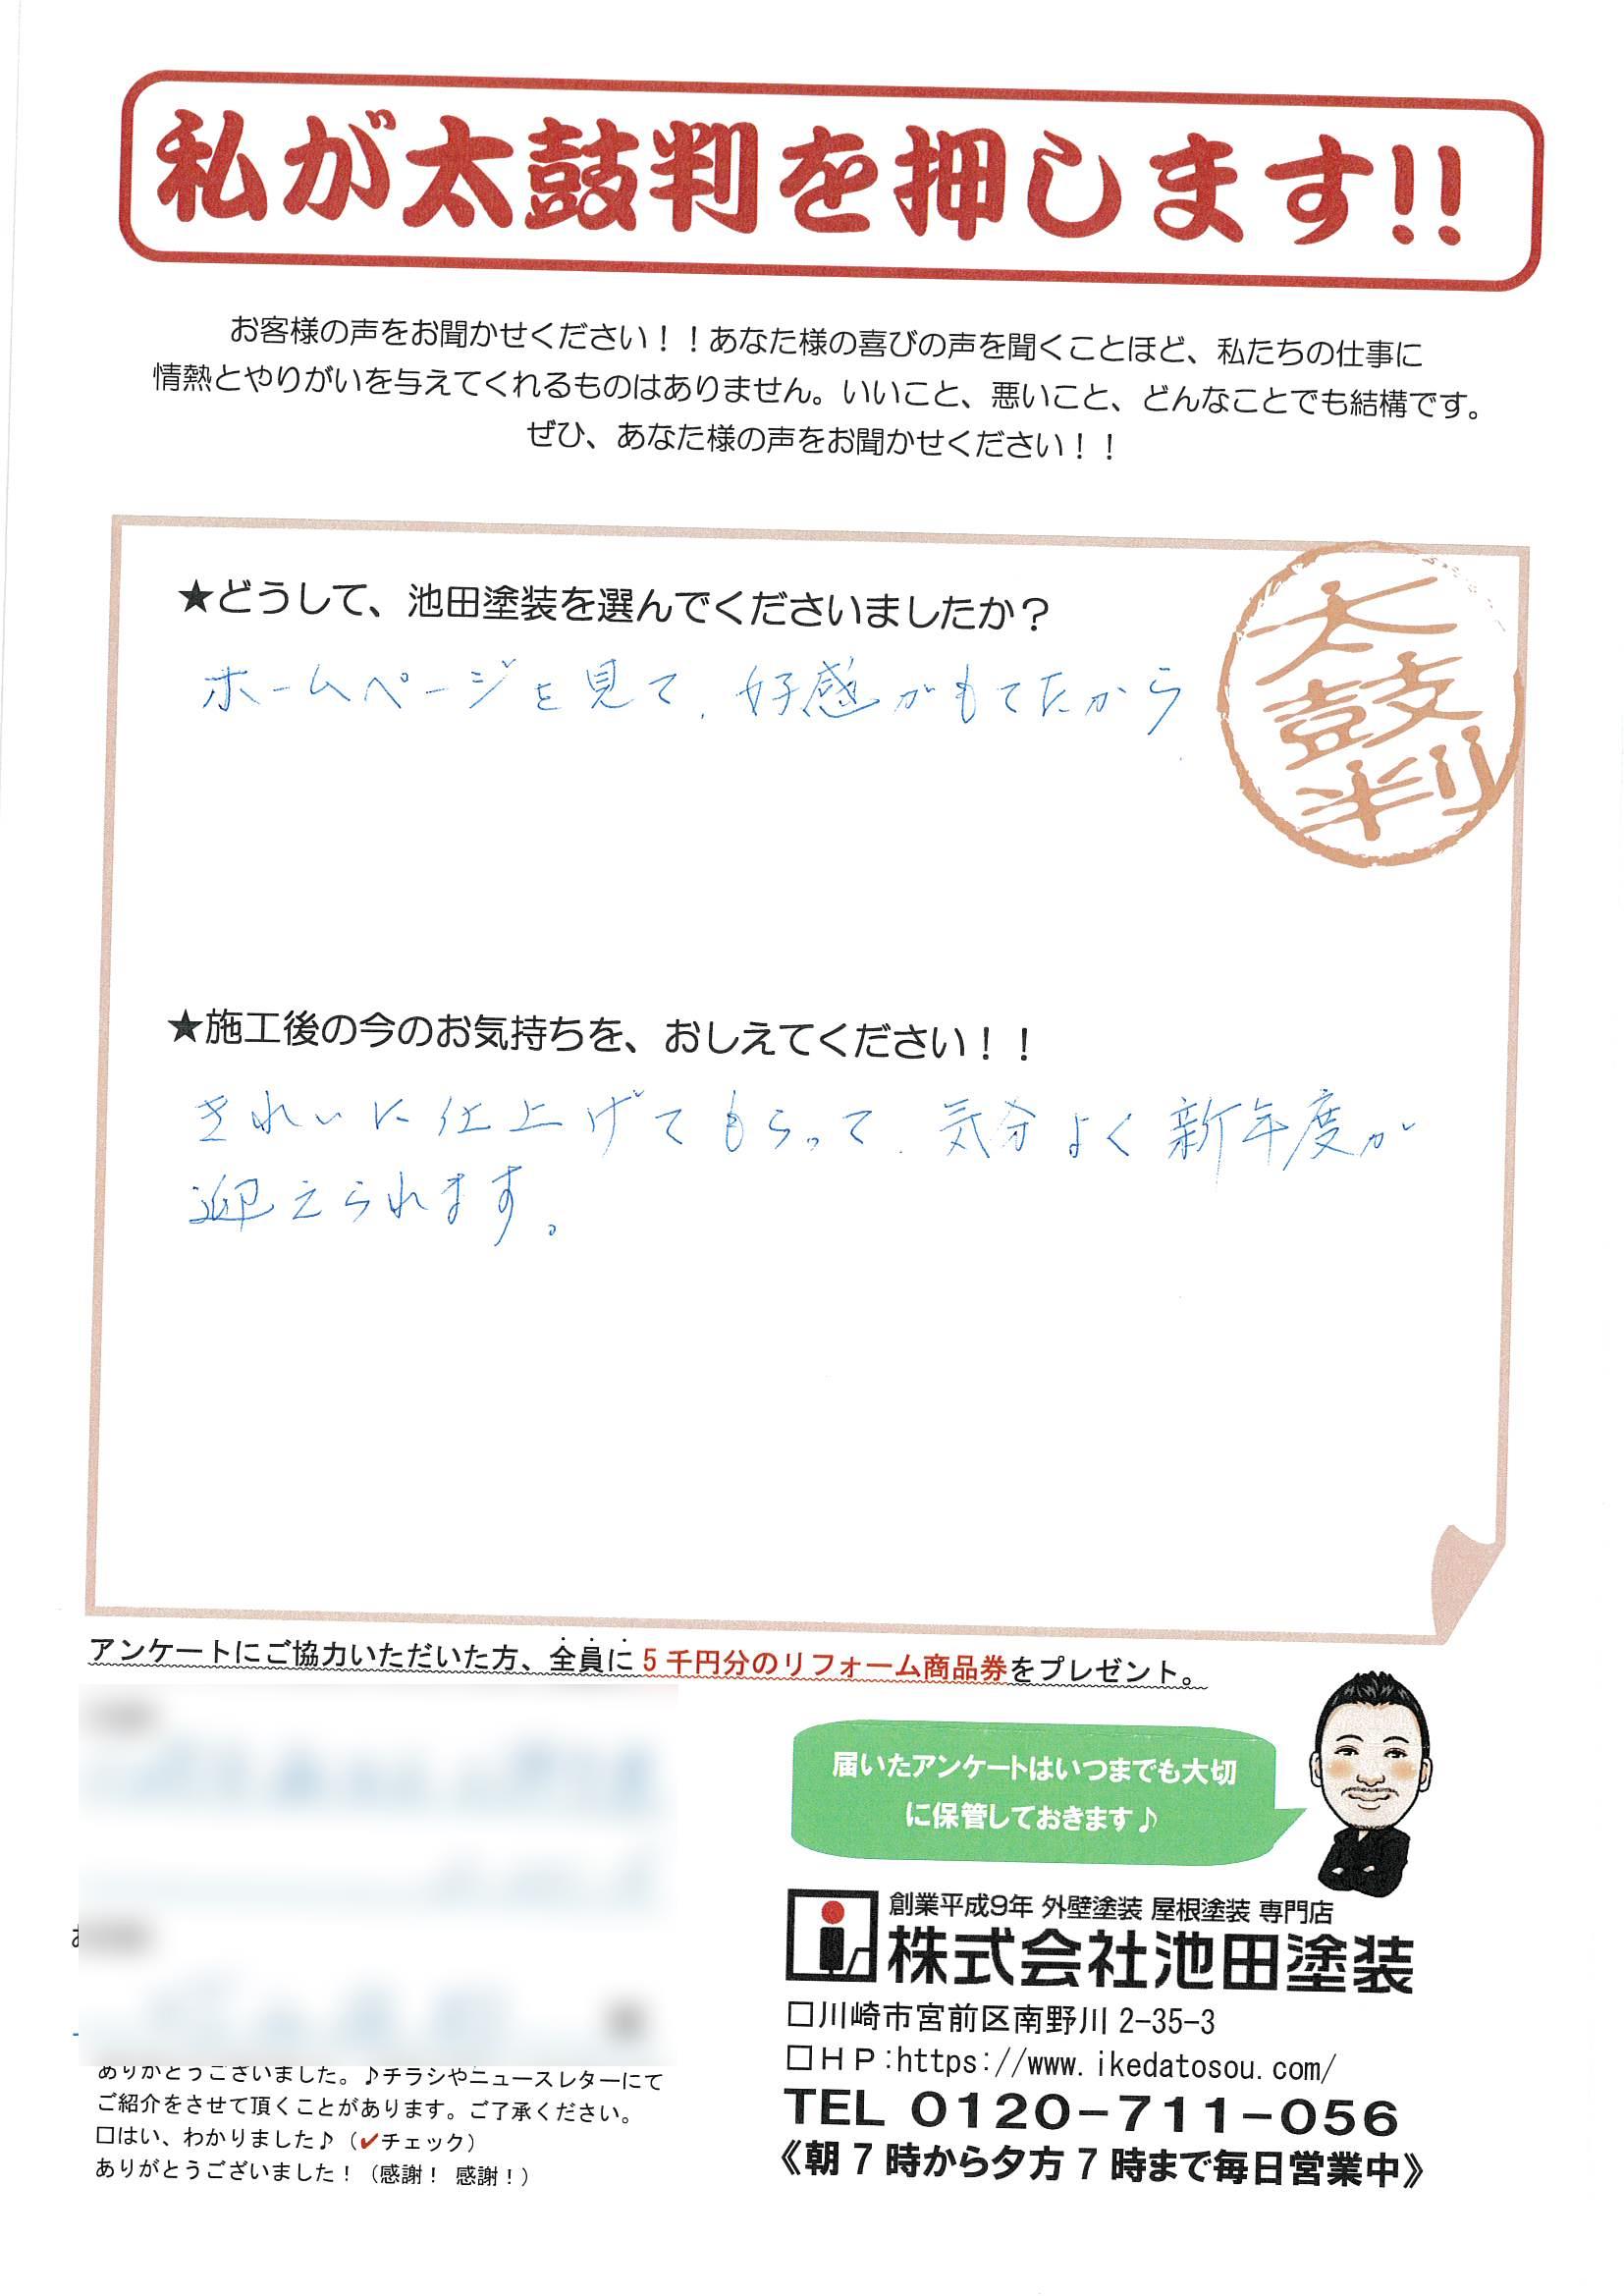 私が太鼓判を押します!!
お客様の声をお聞かせください！！あなた様の喜びの声を聞くことほど、私たちの仕事に
情熱とやりがいを与えてくれるものはありません。いいこと、悪いこと、どんなことでも結構です。
ぜひ、あなた様の声をお聞かせください！！
★どうして、池田塗装を選んでくださいましたか？
ホームページを見て、好感がもてたから
太
鼓
判
★施工後の今のお気持ちを、おしえてください！！
きれいに仕上げてもらって、気分よく新年度が
迎えられます。
アンケートにご協力いただいた方、全員に5千円分のリフォーム商品券をプレゼント。
届いたアンケートはいつまでも大切
に保管しておきます♪
創業平成9年 外壁塗装 屋根塗装 専門店
株式会社池田塗装
□川崎市宮前区南野川2-35-3
□ＨＰ:https://www.ikedatosou.com/
TEL 0120-711-056
《朝7時から夕方7時まで毎日営業中》
ありがとうございました。♪チラシやニュースレターにて
ご紹介をさせて頂くことがあります。ご了承ください。
□はい、わかりました♪（✔チェック）
ありがとうございました！（感謝！ 感謝！）